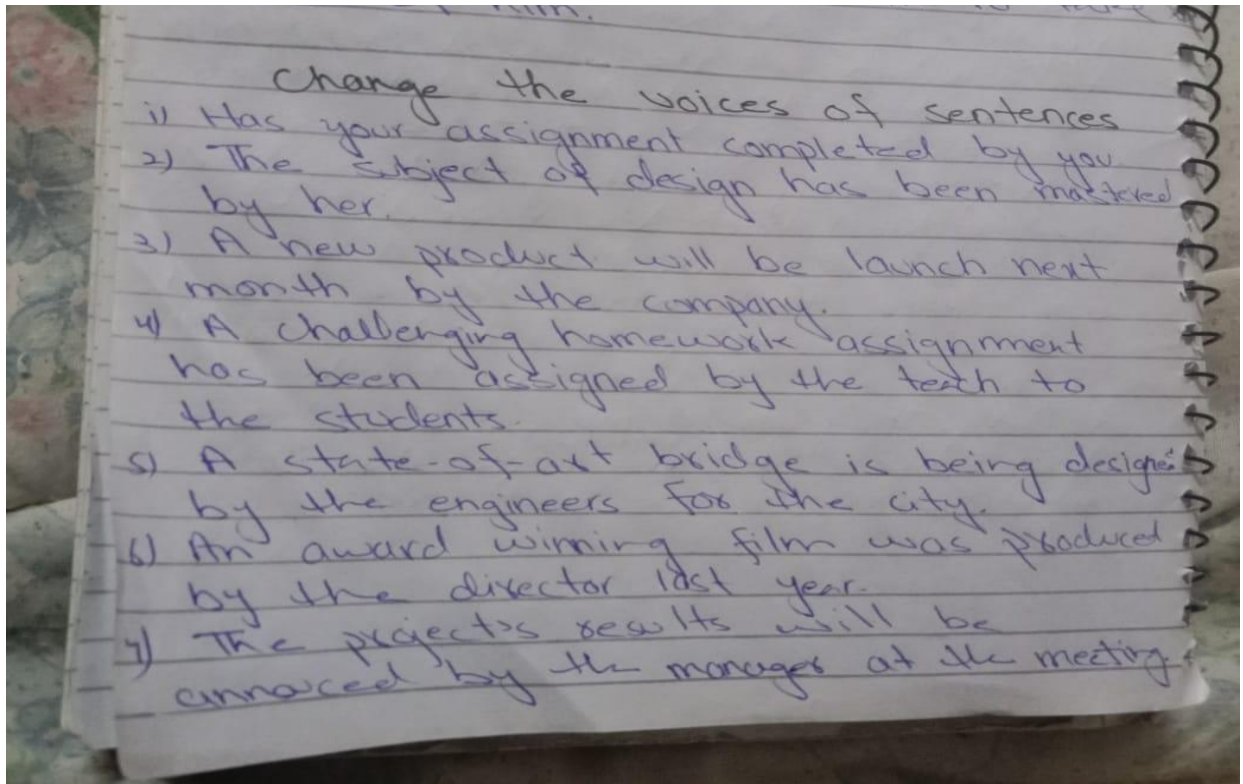 him.
Change the voices of sentences
i) Has your assignment completed by you
2) The subject of design has been mastered
by her.
3) A new product will be launch next
month by the company.
4) A challenging homework assignment
has been assigned by the teach to
the students.
5) A state-of-art bridge is being designed
by the engineers for the city.
6) An award winning film was produced
by the director last year.
7) The project's results will be
annouced by the manager at the meeting.